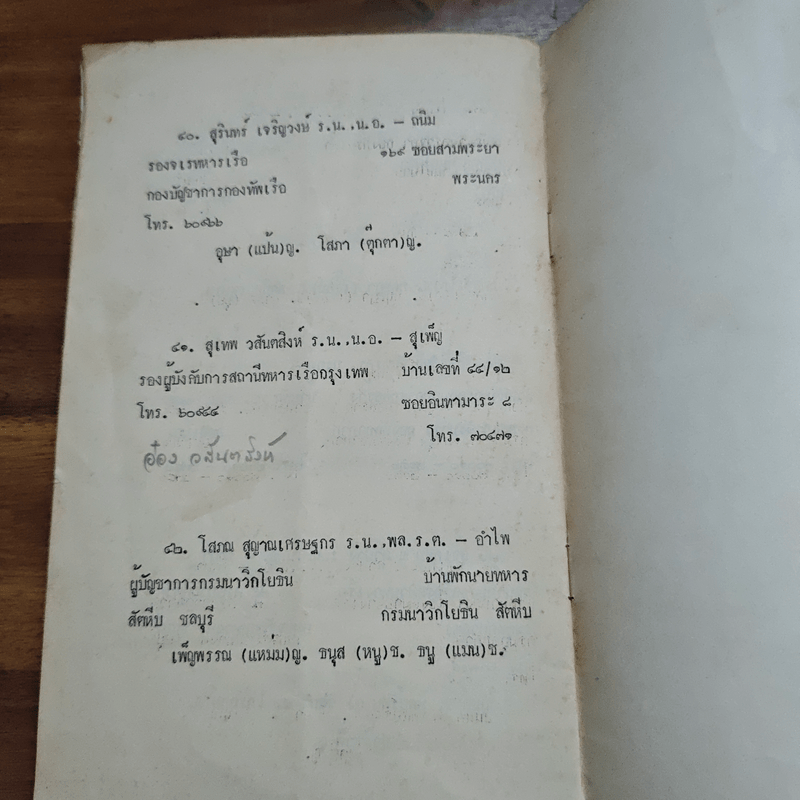 ๔๐. สุรินทร์ เจริญวงษ์ ร.น.,น.อ. – ถนิม
รองจเรทหารเรือ ๑๖๙ ซอยสามพระยา
กองบัญชาการกองทัพเรือ พระนคร
โทร. ๖๐๙๖๖
อุษา (แป้น)ญ. โสภา (ตุ๊กตา)ญ.
๔๑. สุเทพ วสันตสิงห์ ร.น.,น.อ. – สุเพ็ญ
รองผู้บังคับการสถานีทหารเรือกรุงเทพ บ้านเลขที่ ๔๔/๑๒
โทร. ๖๐๙๔๔ ซอยอินทามาระ ๘
โทร. ๗๐๔๗๑
อ๋อง วสันตสิงห์
๔๒. โสภณ สุญาณเศรษฐกร ร.น.,พล.ร.ต. – อำไพ
ผู้บัญชาการกรมนาวิกโยธิน บ้านพักนายทหาร
สัตหีบ ชลบุรี กรมนาวิกโยธิน สัตหีบ
เพ็ญพรรณ (แหม่ม)ญ. ธนุส (หนู)ช. ธนู (แมน)ช.